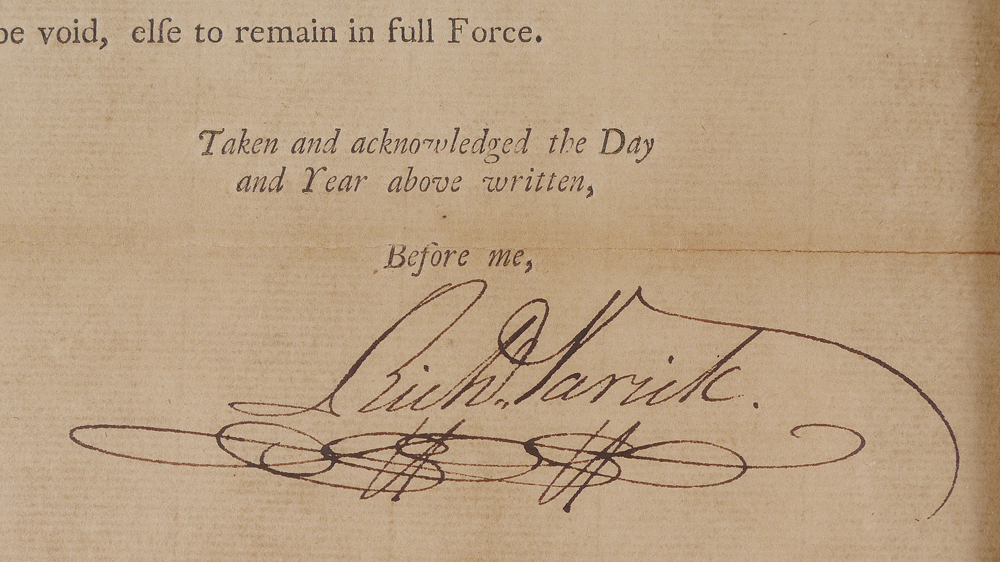 be void, elſe to remain in full Force.
Taken and acknowledged the Day
and Year above written,
Before me,
Richd. Varick.